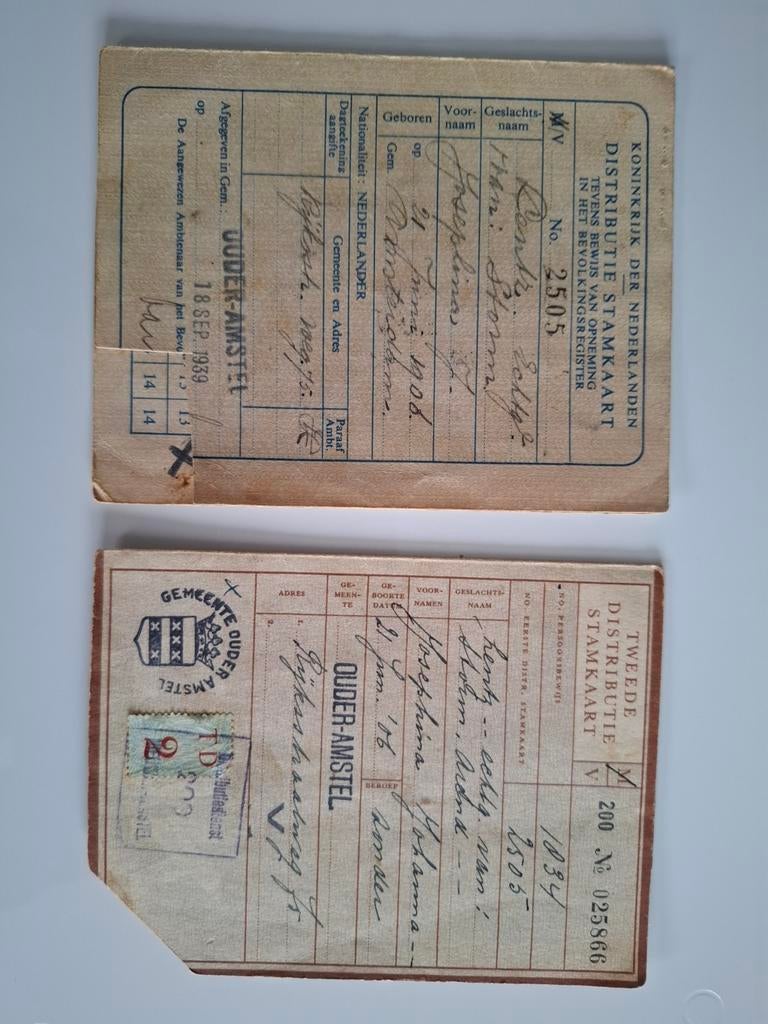 KONINKRIJK DER NEDERLANDEN
DISTRIBUTIE STAMKAART
TEVENS BEWIJS VAN OPNEMING
IN HET BEVOLKINGSREGISTER
M/V No. 2505
Geslachts-
naam
Lentz. Echtg.
van: Storm.
Voor-
naam
Josephina J.
Geboren
op 21 Juni 1906
Gem. Amsterdam.
Nationaliteit: NEDERLANDER
Dagteekening
aangifte
Gemeente en Adres
Paraaf
Ambt.
Rijksstr. weg 75.
Afgegeven in Gem.: OUDER-AMSTEL
op 18 SEP. 1939
De Aangewezen Ambtenaar van het Bevo
13 13
14 14
TWEEDE
DISTRIBUTIE
STAMKAART
M
V
200 No 025866
NO. PERSOONSBEWIJS
1834
NO. EERSTE DISTR. STAMKAART
2505
GESLACHTS-
NAAM
Lentz -- echtg. van:
Storm, Arend --
VOOR-
NAMEN
Josephina Johanna --
GE-
BOORTE
DATUM
21 Jun. '06
BEROEP
zonder
GE-
MEEN-
TE
OUDER-AMSTEL
ADRES
1. Rijksstraatweg 75
2.
GEMEENTE OUDER AMSTEL
TD
2
Distributiedienst